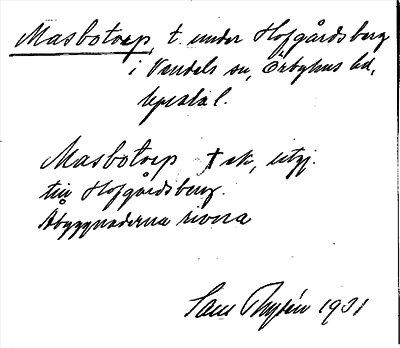 Masbotorp, t. under Hofgårdsberg
i Vendels sn, Örbyhus hd,
Uppsala l.
Masbotorp † sk, utgj.
till Hofgårdsberg.
Åbyggnaderna rivna
1931